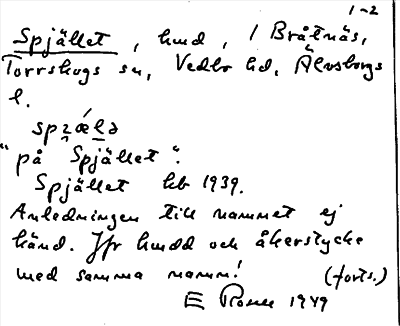 1-2
Spjället, hmd, i Bråtnäs,
Torrskogs sn, Vedbo hd, Älvsborgs
l.
"på Spjället".
Spjället kb 1939.
Anledningen till namnet ej
känd. Jfr hmdd och åkerstycke
med samma namn!
(forts.)
E Rosén 1949